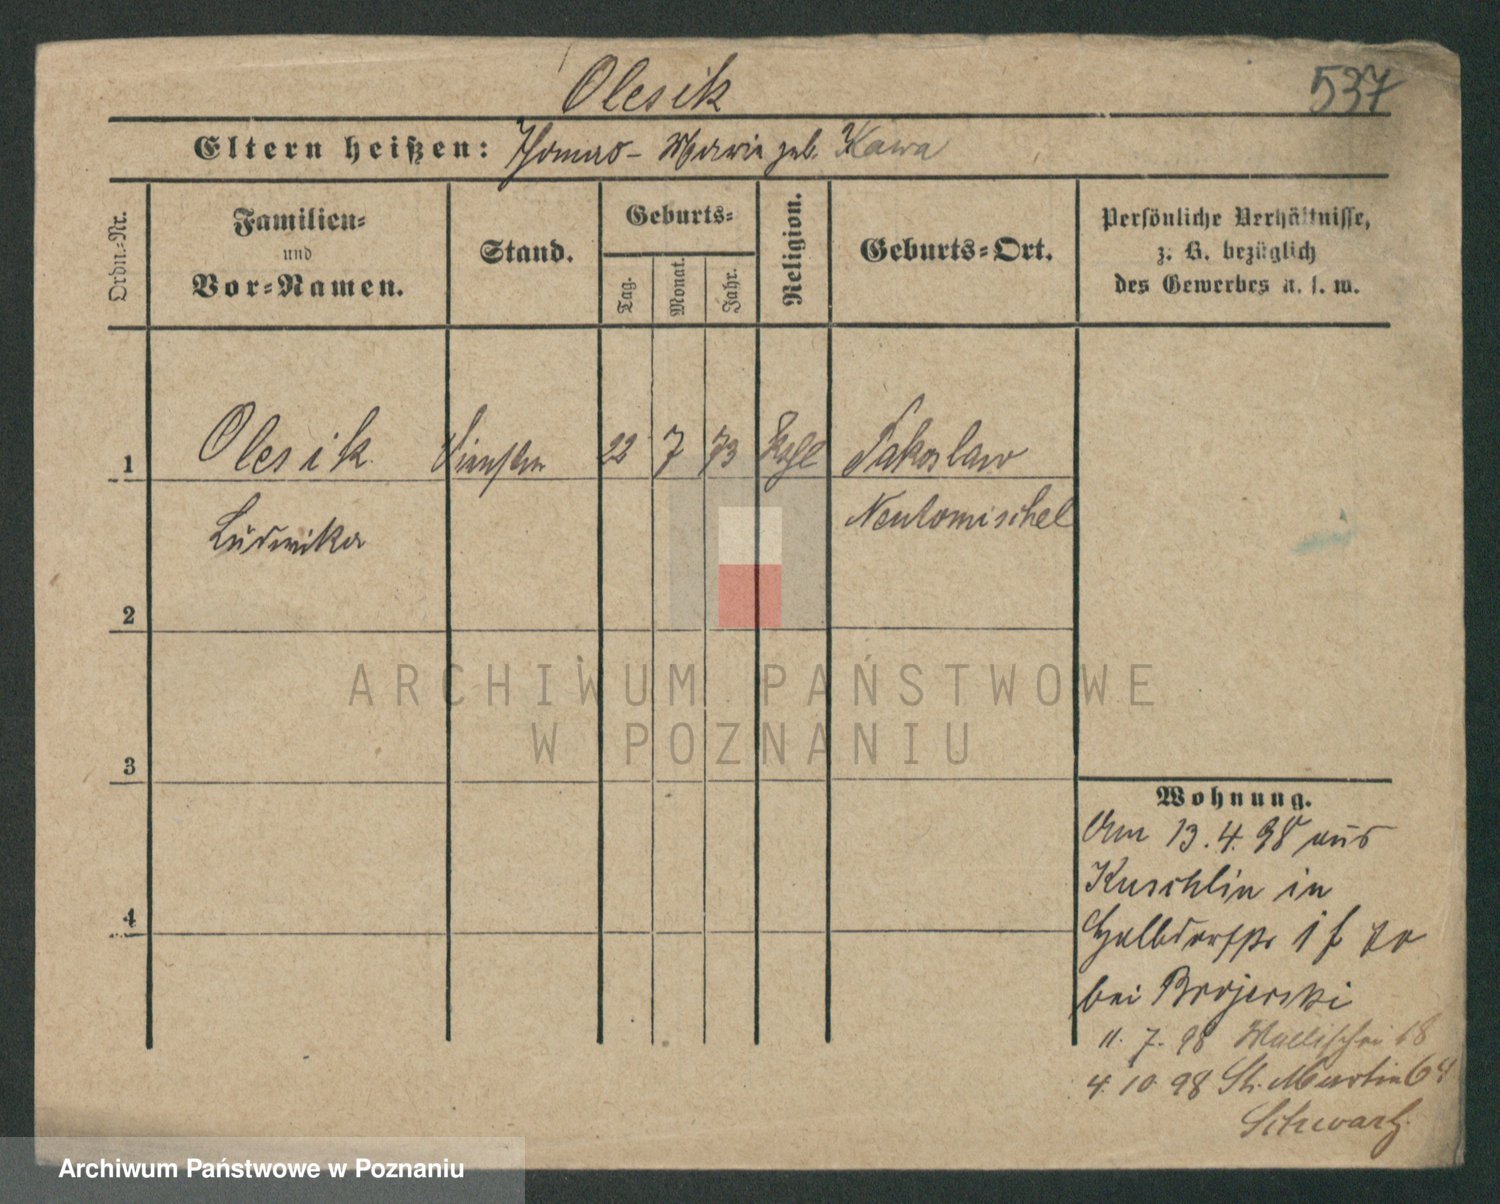 Olesik
537
Eltern heißen: Thomas - Marie geb. Kawa
Ordn.-Nr.
Familien- und Vor-Namen.
Stand.
Geburts-
Tag.
Monat.
Jahr.
Religion.
Geburts-Ort.
Persönliche Verhältnisse,
z. B. bezüglich
des Gewerbes u. s. w.
1 Olesik 22 7 73 Kath Jakoslaw
Ludwika Neutomischel
2
3
4
Wohnung.
Am 13.4.98 aus
Kuschlin in
Halbdorfstr
bei Brojerski
11. 7. 98 Wallischei 68
4. 10. 98 St. Martin 64
Schwartz
ARCHIWUM PAŃSTWOWE
W POZNANIU
Archiwum Państwowe w Poznaniu